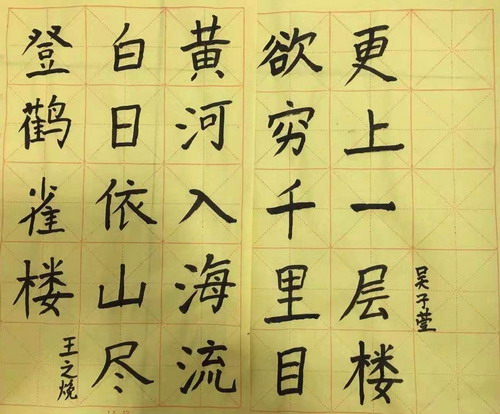 登鹳雀楼
王之焕
白日依山尽
黄河入海流
欲穷千里目
更上一层楼
吴子莹